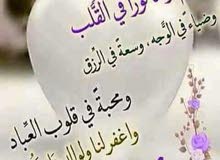 نورًا في القَلب
وضياء في الوَجه ، وسعةً في الرّزق
ومحبةً في قلوب العِباد
واغفر لنا